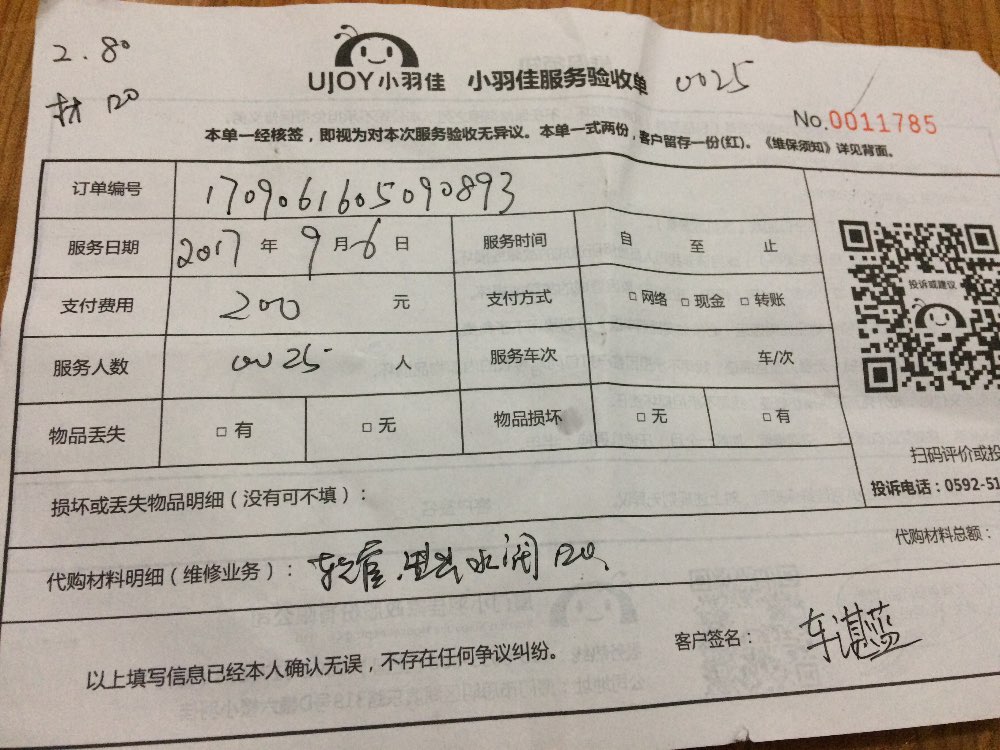 2.80
材 120
UJOY小羽佳 小羽佳服务验收单 0025
No.0011785
本单一经核签，即视为对本次服务验收无异议。本单一式两份，客户留存一份(红)。《维保须知》详见背面。
订单编号 1709061605090893
服务日期 2017 年 9 月 6 日 服务时间 自 至 止
投诉或建议
支付费用 200 元 支付方式 □ 网络 □ 现金 □ 转账
服务人数 0025 人 服务车次 车/次
物品丢失 □ 有 □ 无 物品损坏 □ 无 □ 有
扫码评价或投
损坏或丢失物品明细（没有可不填）：
投诉电话：0592-51
代购材料总额：
代购材料明细（维修业务）： 软管 水阀 120
以上填写信息已经本人确认无误，不存在任何争议纠纷。
客户签名： 车湛蓝